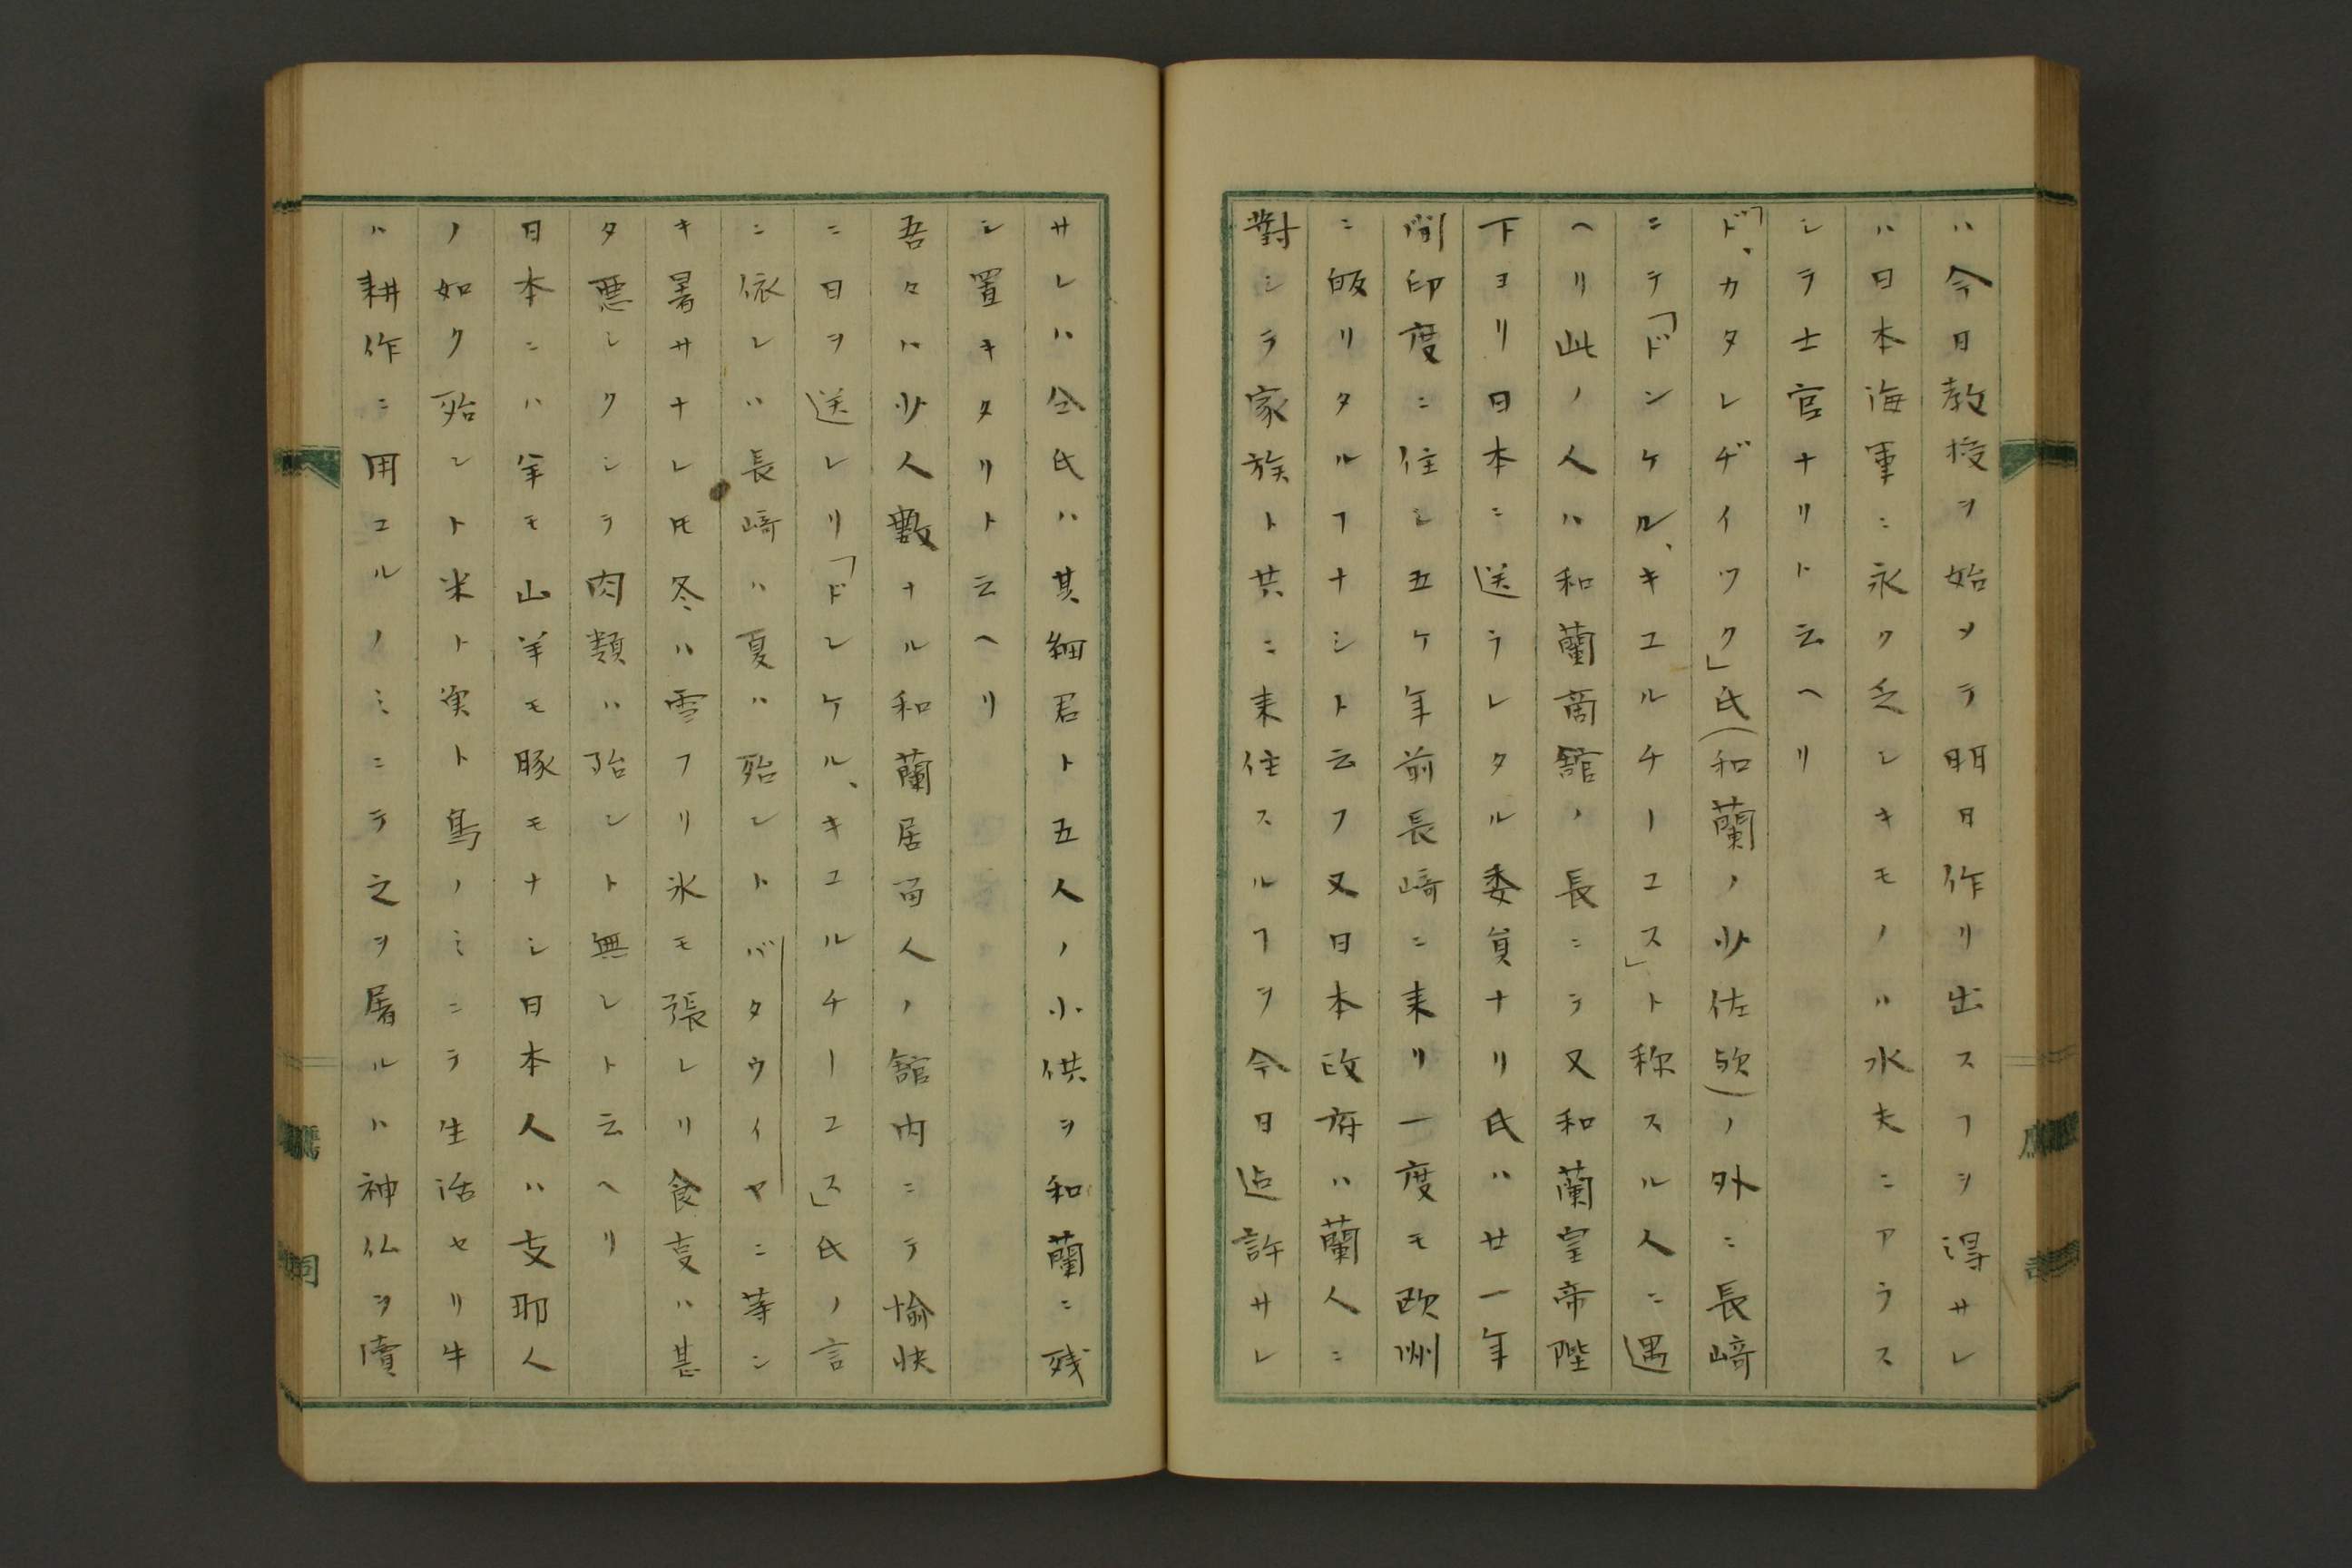 ハ今日教授ヲ始メテ明日作リ出スヿヲ得サレ
ハ日本海軍ニ永ク乏シキモノハ水夫ニアラス
シテ士官ナリト云ヘリ
「ド、カタレヂイツク」氏(和蘭ノ少佐欤)ノ外ニ長﨑
ニテ「ドンケル、キユルチーユス」ト称スル人ニ遇
ヘリ此ノ人ハ和蘭商舘ノ長ニテ又和蘭皇帝陛
下ヨリ日本ニ送ラレタル委員ナリ氏ハ廿一年
間印度ニ住シ五ケ年前長﨑ニ来リ一度モ欧洲
ニ皈リタルヿナシト云フ又日本政府ハ蘭人ニ
對シテ家族ト共ニ来住スルヿヲ今日迠許サレ
サレハ仝氏ハ其細君ト五人ノ小供ヲ和蘭ニ残
シ置キタリト云ヘリ
吾々ハ少人數ナル和蘭居畄人ノ舘内ニテ愉快
ニ日ヲ送レリ「ドンケル、キユルチーユス」氏ノ言
ニ依レハ長﨑ハ夏ハ殆ントバタウイヤニ等シ
キ暑サナレ𪜈冬ハ雪フリ氷モ張レリ食叓ハ甚
タ悪シクシテ肉類ハ殆ント無シト云ヘリ
日本ニハ羊モ山羊モ豚モナシ日本人ハ支那人
ノ如ク殆ント米ト実ト鳥ノミニテ生活セリ牛
ハ耕作ニ用ユルノミニテ之ヲ屠ルハ神仏ヲ瀆